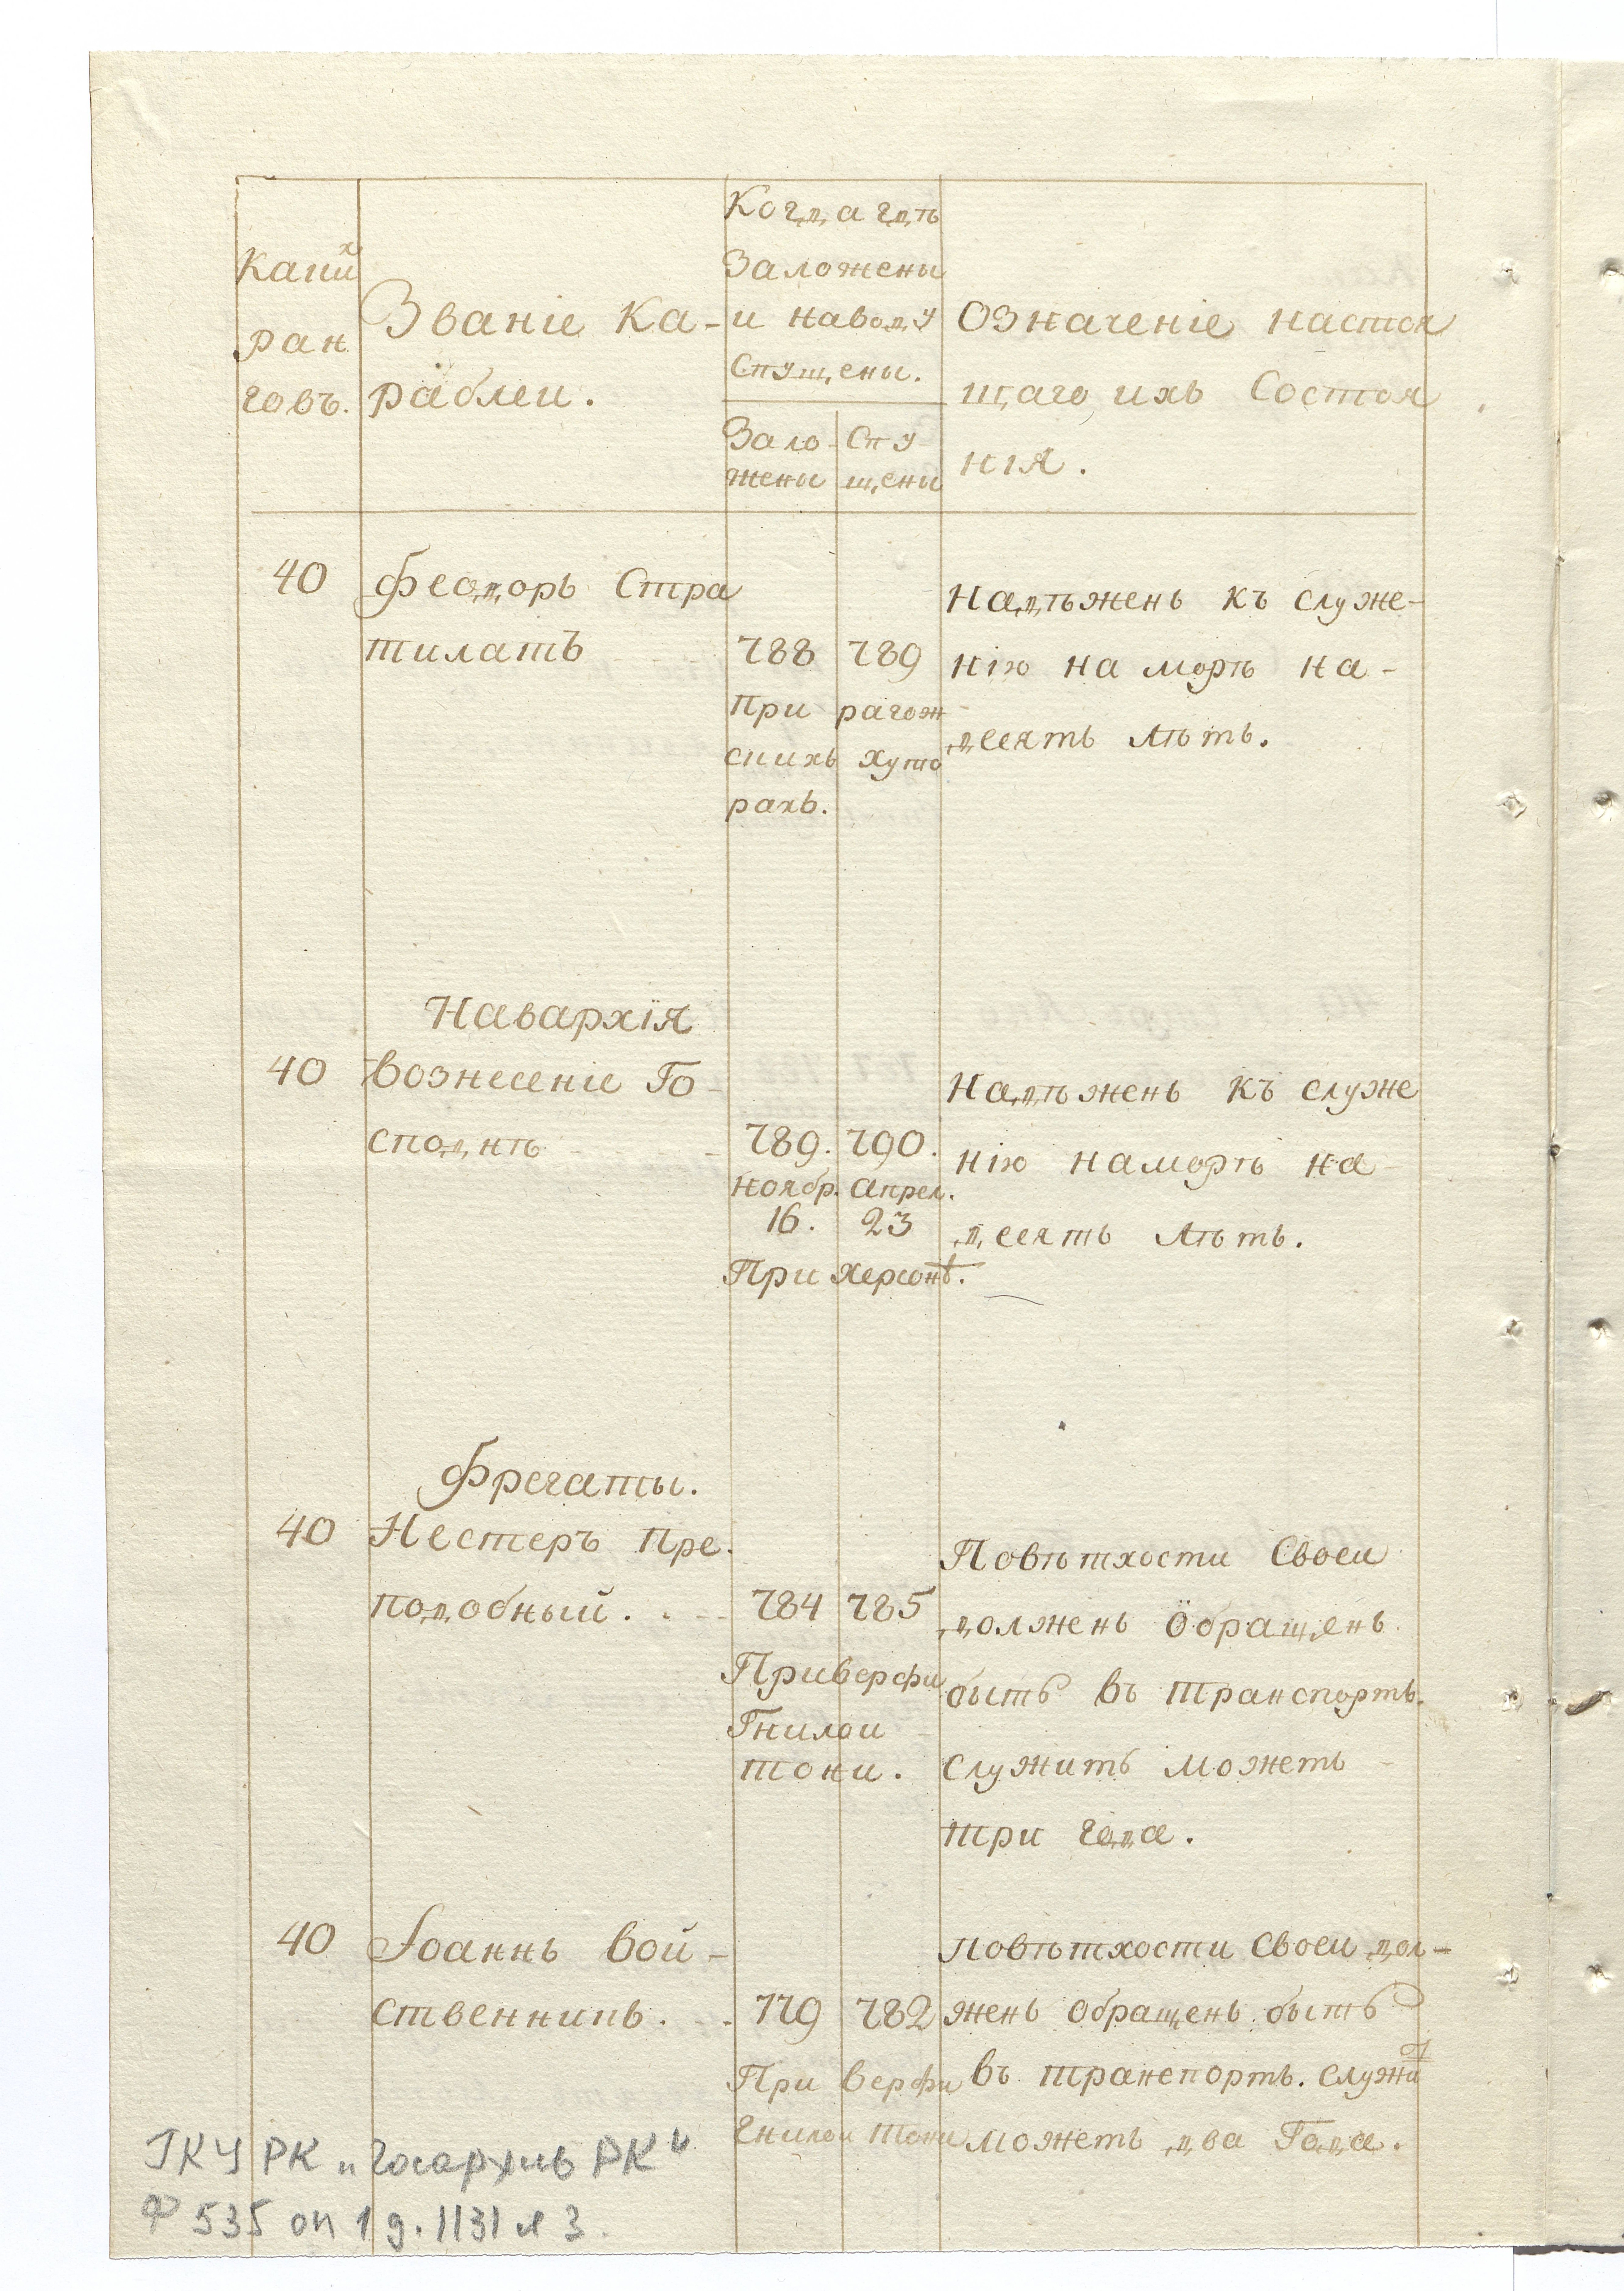 Каких
ран
говъ.
Званіе Ка-
раблеи.
Когда гдѣ
Заложены
и наводу
Спущены.
Зало-
жены
Спу
щены
Означеніе настоя
щаго ихъ Состоя
нія.
40
Феодоръ Стра
тилатъ
788 789
При рагож
скихъ хуто
рахъ.
Надѣженъ къ служе-
нію на морѣ на-
десять лѣтъ.
Навархія
40
Вознесеніе Го-
сподне
789. 790.
Ноябр. Апрел.
16. 23
При Херсонѣ.
Надѣженъ къ служе
нію на морѣ на
десять лѣтъ.
Фрегаты.
40
Нестеръ Пре-
подобный.
784 785
При верфи
Гнилои
тони.
Повѣтхости Своеи
долженъ обращенъ
быть въ транспортъ.
служить можетъ
три года.
40
Іоаннъ Вои-
ственникъ.
779 782
При верфи
Гнилои тони
Повѣтхости Своеи дол-
женъ обращенъ быть
въ транспортъ. служит
можетъ два Года.
ГКУ РК „Госархив РК"
Ф 535 оп 1 д. 1131 л 3.